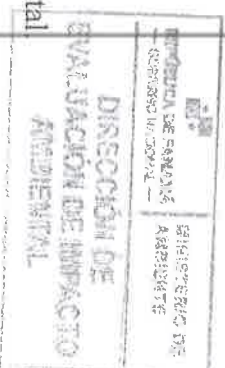 REPÚBLICA DE PANAMÁ
— GOBIERNO NACIONAL —
MINISTERIO DE
AMBIENTE
DIRECCIÓN DE
EVALUACIÓN DE IMPACTO
AMBIENTAL
tal